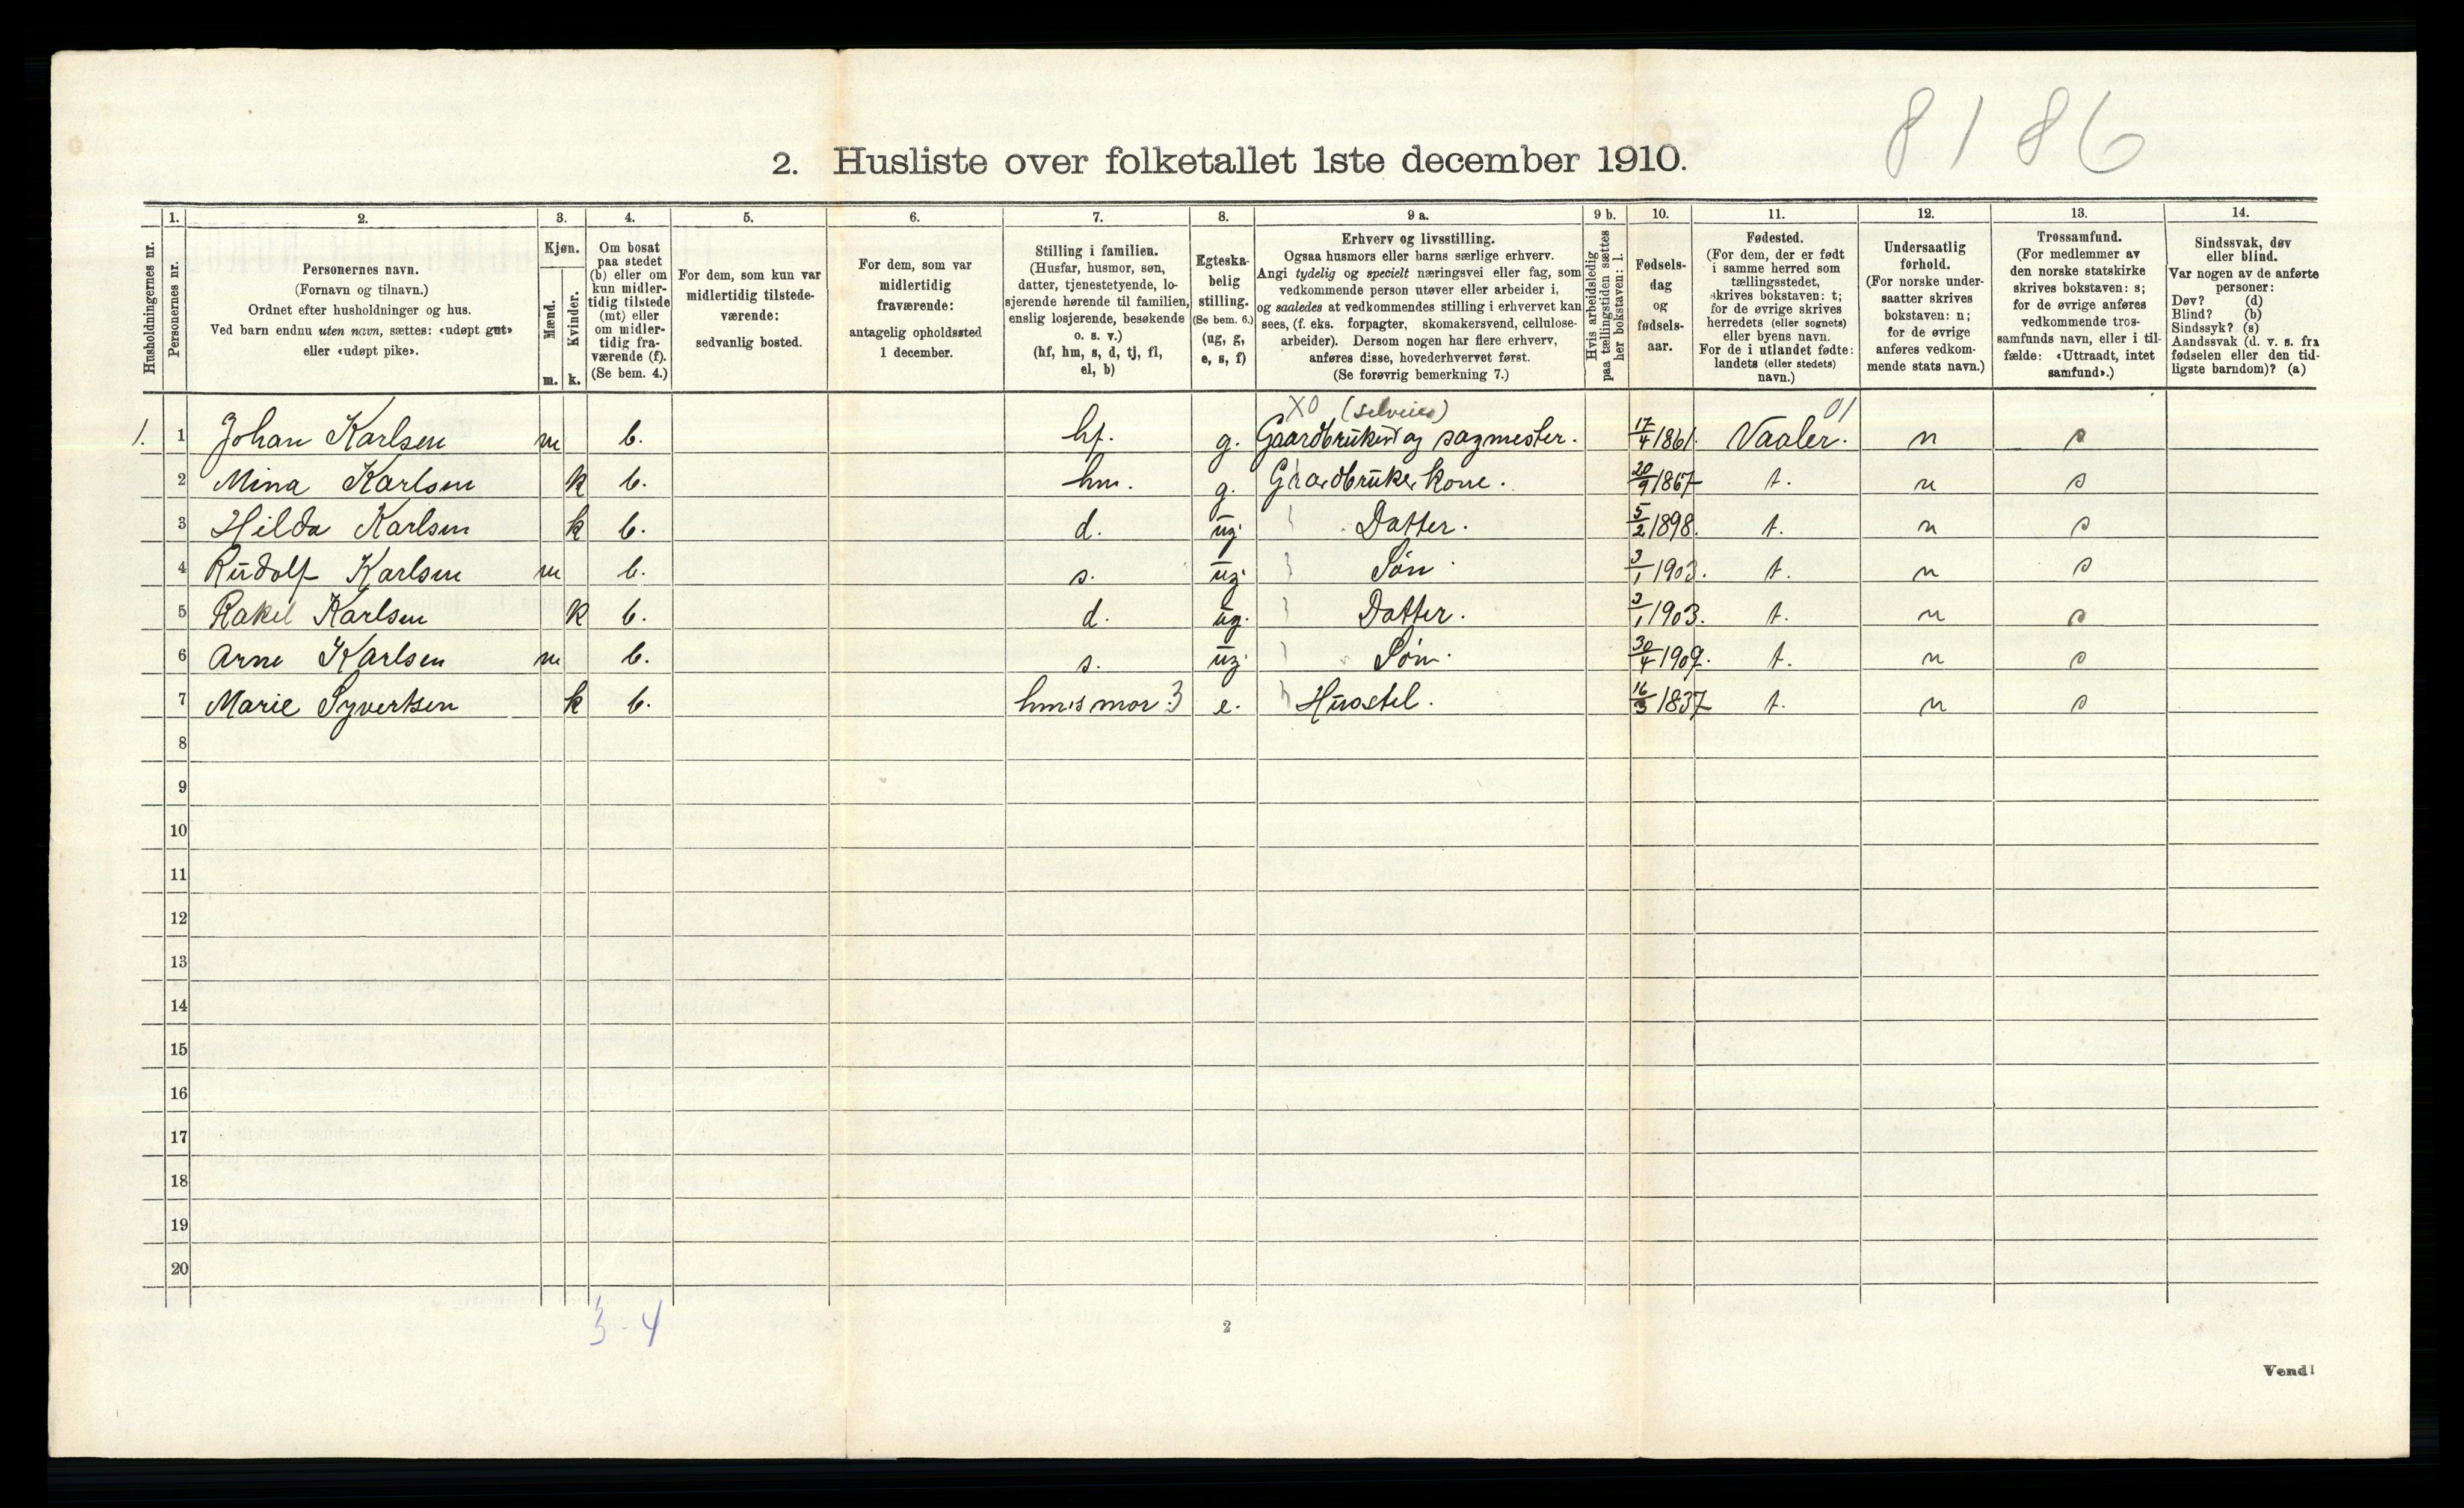 8186
2. Husliste over folketallet 1ste december 1910.
Husholdningernes nr.
1. Personernes nr.
2. Personernes navn.
(Fornavn og tilnavn.)
Ordnet efter husholdninger og hus.
Ved barn endnu uten navn, sættes: «udøpt gut»
eller «udøpt pike».
3. Kjøn.
Mænd. m.
Kvinder. k.
4. Om bosat
paa stedet
(b) eller om
kun midler-
tidig tilstede
(mt) eller
om midler-
tidig fra-
værende (f).
(Se bem. 4.)
5. For dem, som kun var
midlertidig tilstede-
værende:
sedvanlig bosted.
6. For dem, som var
midlertidig
fraværende:
antagelig opholdssted
1 december.
7. Stilling i familien.
(Husfar, husmor, søn,
datter, tjenestetyende, lo-
sjerende hørende til familien,
enslig losjerende, besøkende
o. s. v.)
(hf, hm, s, d, tj, fl,
el, b)
8. Egteska-
belig
stilling.
(Se bem. 6.)
(ug, g,
e, s, f)
9 a. Erhverv og livsstilling.
Ogsaa husmors eller barns særlige erhverv.
Angi tydelig og specielt næringsvei eller fag, som
vedkommende person utøver eller arbeider i,
og saaledes at vedkommendes stilling i erhvervet kan
sees, (f. eks. forpagter, skomakersvend, cellulose-
arbeider). Dersom nogen har flere erhverv,
anføres disse, hovederhvervet først.
(Se forøvrig bemerkning 7.)
9 b. Hvis arbeidsledig
paa tællingstiden sættes
her bokstaven: l.
10. Fødsels-
dag
og
fødsels-
aar.
11. Fødested.
(For dem, der er født
i samme herred som
tællingsstedet,
skrives bokstaven: t;
for de øvrige skrives
herredets (eller sognets)
eller byens navn.
For de i utlandet fødte:
landets (eller stedets)
navn.)
12. Undersaatlig
forhold.
(For norske under-
saatter skrives
bokstaven: n;
for de øvrige
anføres vedkom-
mende stats navn.)
13. Trossamfund.
(For medlemmer av
den norske statskirke
skrives bokstaven: s;
for de øvrige anføres
vedkommende tros-
samfunds navn, eller i til-
fælde: «Uttraadt, intet
samfund».)
14. Sindssvak, døv
eller blind.
Var nogen av de anførte
personer:
Døv? (d)
Blind? (b)
Sindssyk? (s)
Aandssvak (d. v. s. fra
fødselen eller den tid-
ligste barndom)? (a)
X0 (selveier) 01
1. 1 Johan Karlsen m b. hf. g. Gaardbruker og sagmester. 17/4 1861. Vaaler. n s
2 Mina Karlsen k b. hm. g. Gaardbruker kone. 20/9 1867 t. n s
3 Hilda Karlsen k b. d. ug. Datter. 5/2 1898. t. n s
4 Rudolf Karlsen m b. s. ug. Søn 3/1 1903. t. n s
5 Rakel Karlsen k b. d. ug. Datter. 3/1 1903. t. n s
6 Arne Karlsen m b. s. ug. Søn. 30/4 1909. t. n s
7 Marie Syvertsen k b. hm's mor. 3 e. Husstel. 16/3 1837 t. n s
8
9
10
11
12
13
14
15
16
17
18
19
20
3-4
2
Vend!